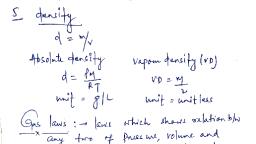 5 density
d = m/v
Absolute density vapour density (VD)
d = PM/RT VD = M/2
unit = g/L unit = unitless
Gas laws :→ laws which shows relation b/w
any two of pressure, volume and